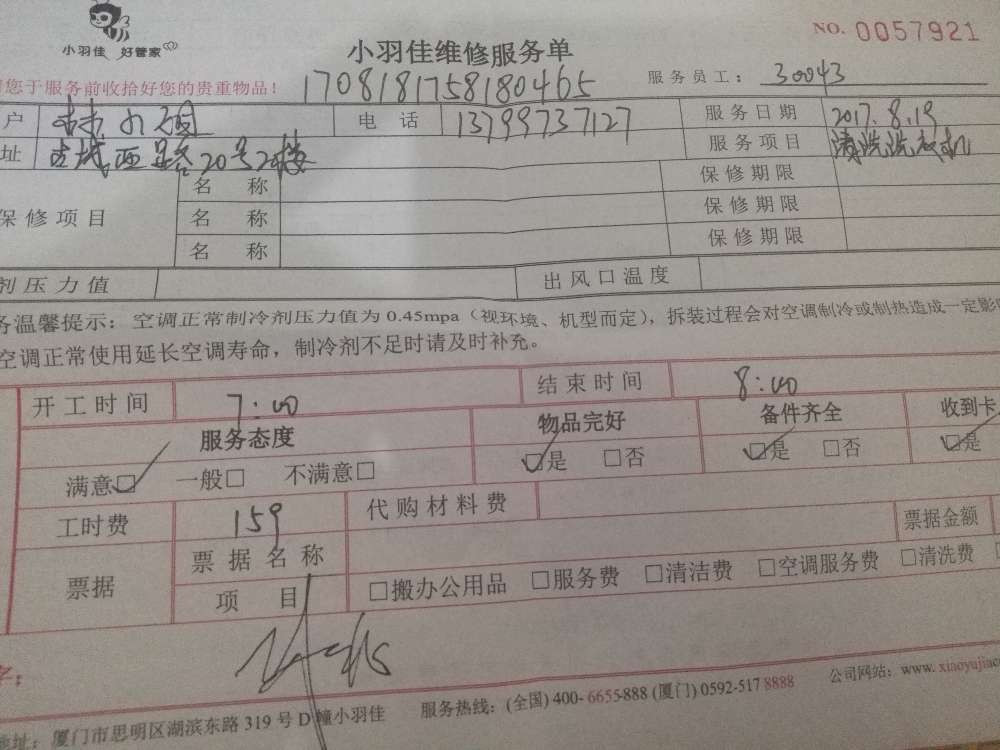 小羽佳 好管家
小羽佳维修服务单
NO. 0057921
您于服务前收拾好您的贵重物品!
1708181758180465
服务员工: 30043
户 林小
电话 13799737127
服务日期 2017.8.19
址 西路20号2楼
服务项目 清洗洗衣机
保修项目
名称 保修期限
名称 保修期限
名称 保修期限
剂压力值 出风口温度
务温馨提示: 空调正常制冷剂压力值为0.45mpa（视环境、机型而定），拆装过程会对空调制冷或制热造成一定影
空调正常使用延长空调寿命，制冷剂不足时请及时补充。
开工时间 7:00 结束时间 8:00
服务态度 物品完好 备件齐全 收到卡
满意□ 一般□ 不满意□ □是 □否 □是 □否 □是
工时费 159 代购材料费
票据 票据名称 票据金额
项目 □搬办公用品 □服务费 □清洁费 □空调服务费 □清洗费
字:
地址: 厦门市思明区湖滨东路319号D幢小羽佳 服务热线: (全国) 400-6655-888 (厦门) 0592-5178888 公司网站: www.xiaoyujia